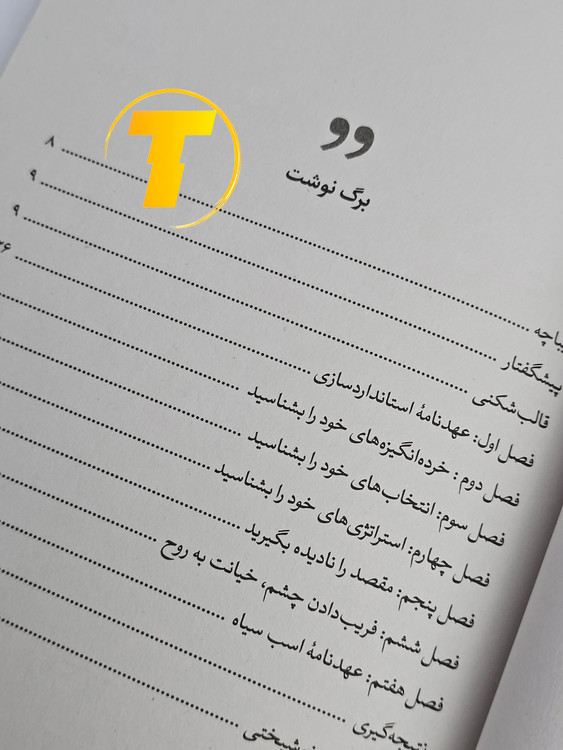 T
برگ نوشت
۸
پیشگفتار ........ ۹
قالب‌شکنی ........ ۹
فصل اول: عهدنامهٔ استانداردسازی
فصل دوم: خرده‌انگیزه‌های خود را بشناسید
فصل سوم: انتخاب‌های خود را بشناسید
فصل چهارم: استراتژی‌های خود را بشناسید
فصل پنجم: مقصد را نادیده بگیرید
فصل ششم: فریب‌دادن چشم، خیانت به روح
فصل هفتم: عهدنامهٔ اسب سیاه